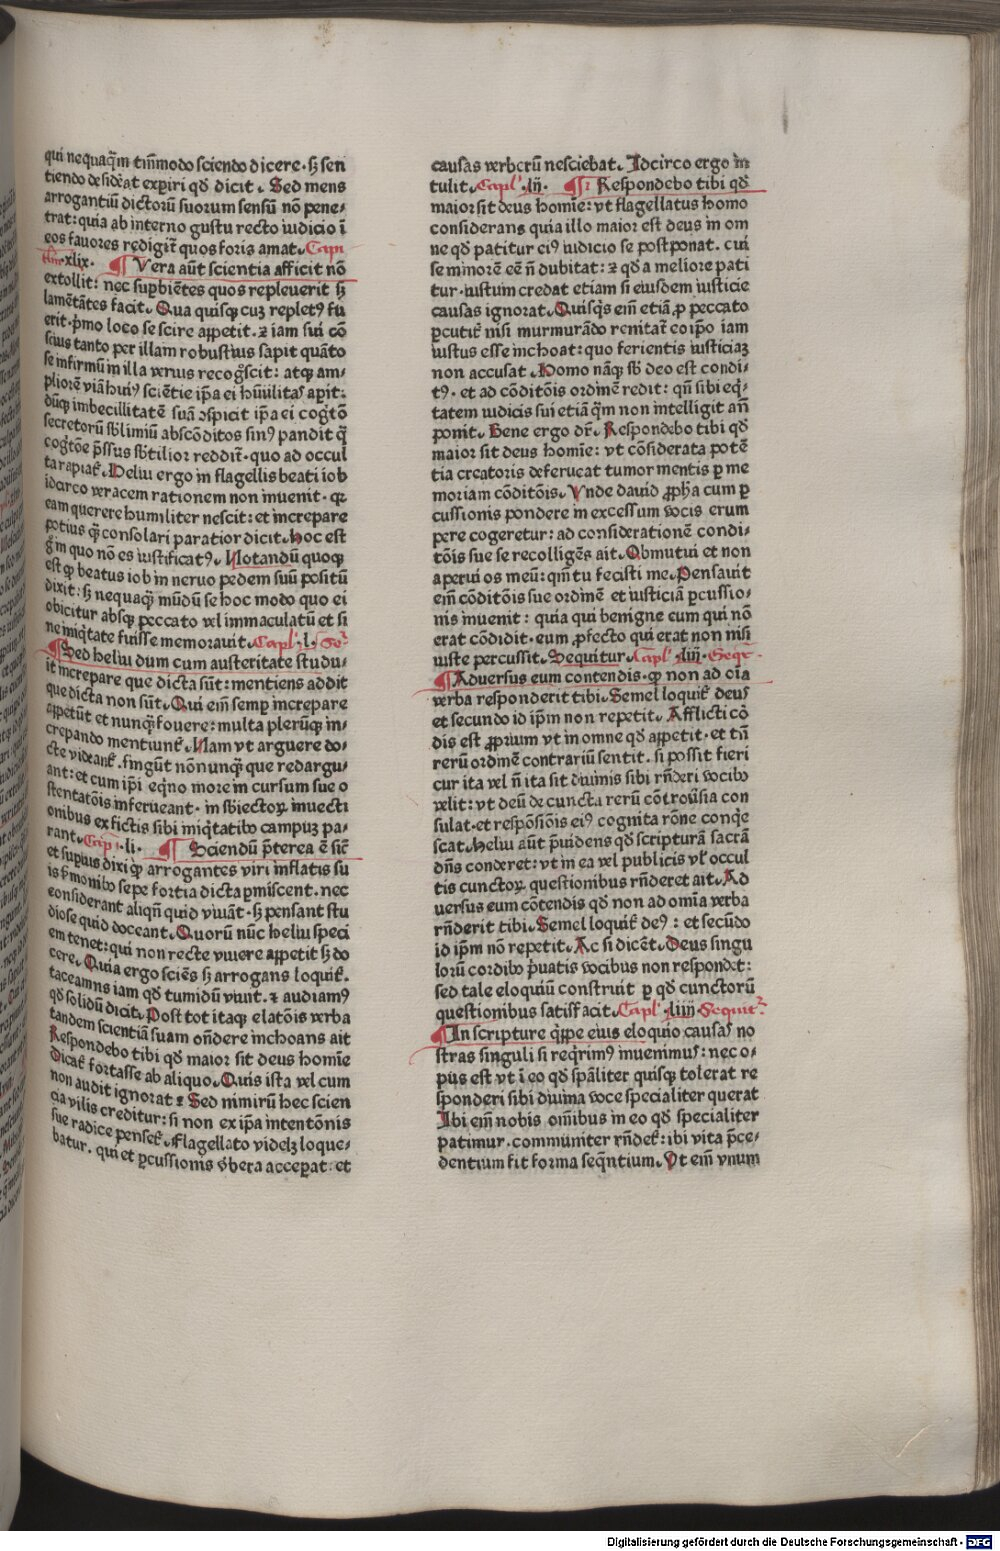 qui nequaq̄m tm̄modo sciendo dicere·sꝫ sen
tiendo desid̓at exꝑiri qd̄ dicit. Sed mens
arrogantiū dictorū suorum sensū nō pene⸗
trat: quia ab interno gustu recto iudicio ī
eos fauores redigit᷑ quos foris amat. Capi
tm̄·xlix· ¶ Vera aūt scientia afficit nō
extollit: nec suꝑbiētes quos repleuerit sꝫ
lamētātes facit. Qua quisqꝫ cuꝫ repletꝰ fu
erit·p̄mo loco se scire appetit·⁊ iam sui cō
scius tanto per illam robustius sapit quāto
se infirmū in illa verius recogn̄scit: atqꝫ am⸗
pliorē viā huiꝰ sciētie ip̄a ei hūilitas apit:
dūqꝫ imbecillitatē suā ɔspicit ip̄a ei cogtō
secretorū sb̄limiū abscōditos sinꝰ pandit q̄
cogtōe p̄ssus sb̄tilior reddit᷑·quo ad occul
ta rapiat᷑. Heliu ergo in flagellis beati iob
idcirco veracem rationem non inuenit·qꝛ
eam querere humiliter nescit: et increpare
potius q̄ consolari paratior dicit. Hoc est
g̊ in quo nō es iustificatꝰ. Notandū quoqꝫ
est ꝙ beatus iob in neruo pedem suū positū
dixit: sꝫ nequaq̄ mūdū se hoc modo quo ei
obicitur absqꝫ peccato vel immaculatū et si
ne iniq̄tate fuisse memorauit. Capl᷑·l· Se᷑
¶ Sed heliu dum cum austeritate studu⸗
it increpare que dicta sūt: mentiens addit
que dicta non sūt. Qui em̄ semꝑ increpare
appetūt et nunq̄ fouere: multa plerūqꝫ in⸗
crepando mentiunt᷑. Nam vt arguere do⸗
cte videant᷑·fingūt nōnunq̄ que redargu⸗
ant: et cum ip̄i eq̄no more in cursum sue o
stentatōis inferueant·in sb̄iectoꝝ inuecti
onibus ex fictis sibi iniq̄tatibꝰ campuꝫ pa⸗
rant. Cap᷑·li· ¶ Sciendū p̄terea ē sic̄
et supius dixi ꝙ arrogantes viri inflatis su
is s̄monibꝰ sepe fortia dicta ꝑmiscent·nec
considerant aliqn̄ quid viuāt·sꝫ pensant stu
diose quid doceant. Quorū nūc heliu speci
em tenet: qui non recte viuere appetit sꝫ do
cere. Quia ergo sciēs sꝫ arrogans loquit᷑.
taceamus iam qd̄ tumidū viuit·⁊ audiamꝰ
qd̄ solidū dicit. Post tot itaqꝫ elatōis verba
tandem scientiā suam on̄dere inchoans ait
Respondebo tibi qd̄ maior sit deus homīe
Dicat᷑ fortasse ab aliquo. Quis ista vel cum
non audit ignorat⁊ Sed nimirū hec scien
cia vilis creditur: si non ex ip̄a intentōnis
sue radice penset᷑. Flagellato videlꝫ loque⸗
batur. qui et ꝑcussionis v̓bera acceꝑat: et
causas verberū nesciebat. Idcirco ergo in
tulit. Capl᷑·lij· ¶ Respondebo tibi qd̄
maior sit deus homīe: vt flagellatus homo
considerans quia illo maior est deus in om
ne qd̄ patitur eiꝰ iudicio se postponat. cui
se minorē eē n̄ dubitat: ⁊ qd̄ a meliore pati
tur·iustum credat etiam si eiusdem iusticie
causas ignorat. Quisq̄s em̄ etiā ꝓ peccato
ꝑcutit᷑ nisi murmurādo renitat᷑ eoip̄o iam
iustus esse inchoat: quo ferientis iusticiaꝫ
non accusat. Homo nāqꝫ sb̄ deo est condi⸗
tꝰ· et ad cōditōis ordinē redit: qn̄ sibi eq̄⸗
tatem iudicis sui etiā q̄m non intelligit an̄
ponit. Bene ergo dr̄. Respondebo tibi qd̄
maior sit deus homīe: vt cōsiderata potē
tia creatoris deferueat tumor mentis ꝑ me
moriam cōditōis. Vnde dauid ꝓph̄a cum ꝑ
cussionis pondere in excessum vocis erum
pere cogeretur: ad considerationē condi⸗
tōis sue se recolligēs ait. Obmutui et non
aperui os meū: qm̄ tu fecisti me. Pensauit
em̄ cōditōis sue ordinē et iusticiā ꝑcussio⸗
nis inuenit: quia qui benigne cum qui nō
erat cōdidit·eum ꝓfecto qui erat non nisi
iuste percussit. Sequitur. Capl᷑·liij·Seqr᷑·
¶ Aduersus eum contendis·ꝙ non ad oīa
verba responderit tibi. Semel loquit᷑ deus
et secundo id ip̄m non repetit. Afflicti cō
dis est ꝓprium vt in omne qd̄ appetit·et tn̄
rerū ordinem contrariū sentit. si possit fieri
cur ita vel n̄ ita sit diuinis sibi rn̄deri vocibꝰ
velit: vt deū de cuncta rerū cōtrou̓sia con
sulat·et respōsiōis eiꝰ cognita rōne conq̄e
scat. Heliu aūt p̄uidens qd̄ scripturā sacrā
dn̄s conderet: vt in ea vel publicis vl᷑ occul
tis cunctoꝝ questionibus rn̄deret ait. Ad
uersus eum cōtendis qd̄ non ad omīa verba
rn̄derit tibi. Semel loquit᷑ deꝰ: et secūdo
id ip̄m nō repetit. Ac si dicēt. Deus singu
lorū cordibꝰ p̄uatis vocibus non respondet:
sed tale eloquiū construit ꝑ qd̄ cunctorū
questionibus satisfacit. Capl᷑·liiij Sequit᷑.
¶ In scripture q̄ppe eius eloquio causas no
stras singuli si req̄rimꝰ inuenimus: nec o⸗
pus est vt ī eo qd̄ spāliter quisqꝫ tolerat re
sponderi sibi diuina voce specialiter querat
Ibi em̄ nobis om̄ibus in eo qd̄ specialiter
patimur·communiter rn̄det᷑: ibi vita p̄ce⸗
dentium fit forma seq̄ntium. Vt em̄ vnum
Digitalisierung gefördert durch die Deutsche Forschungsgemeinschaft - DFG